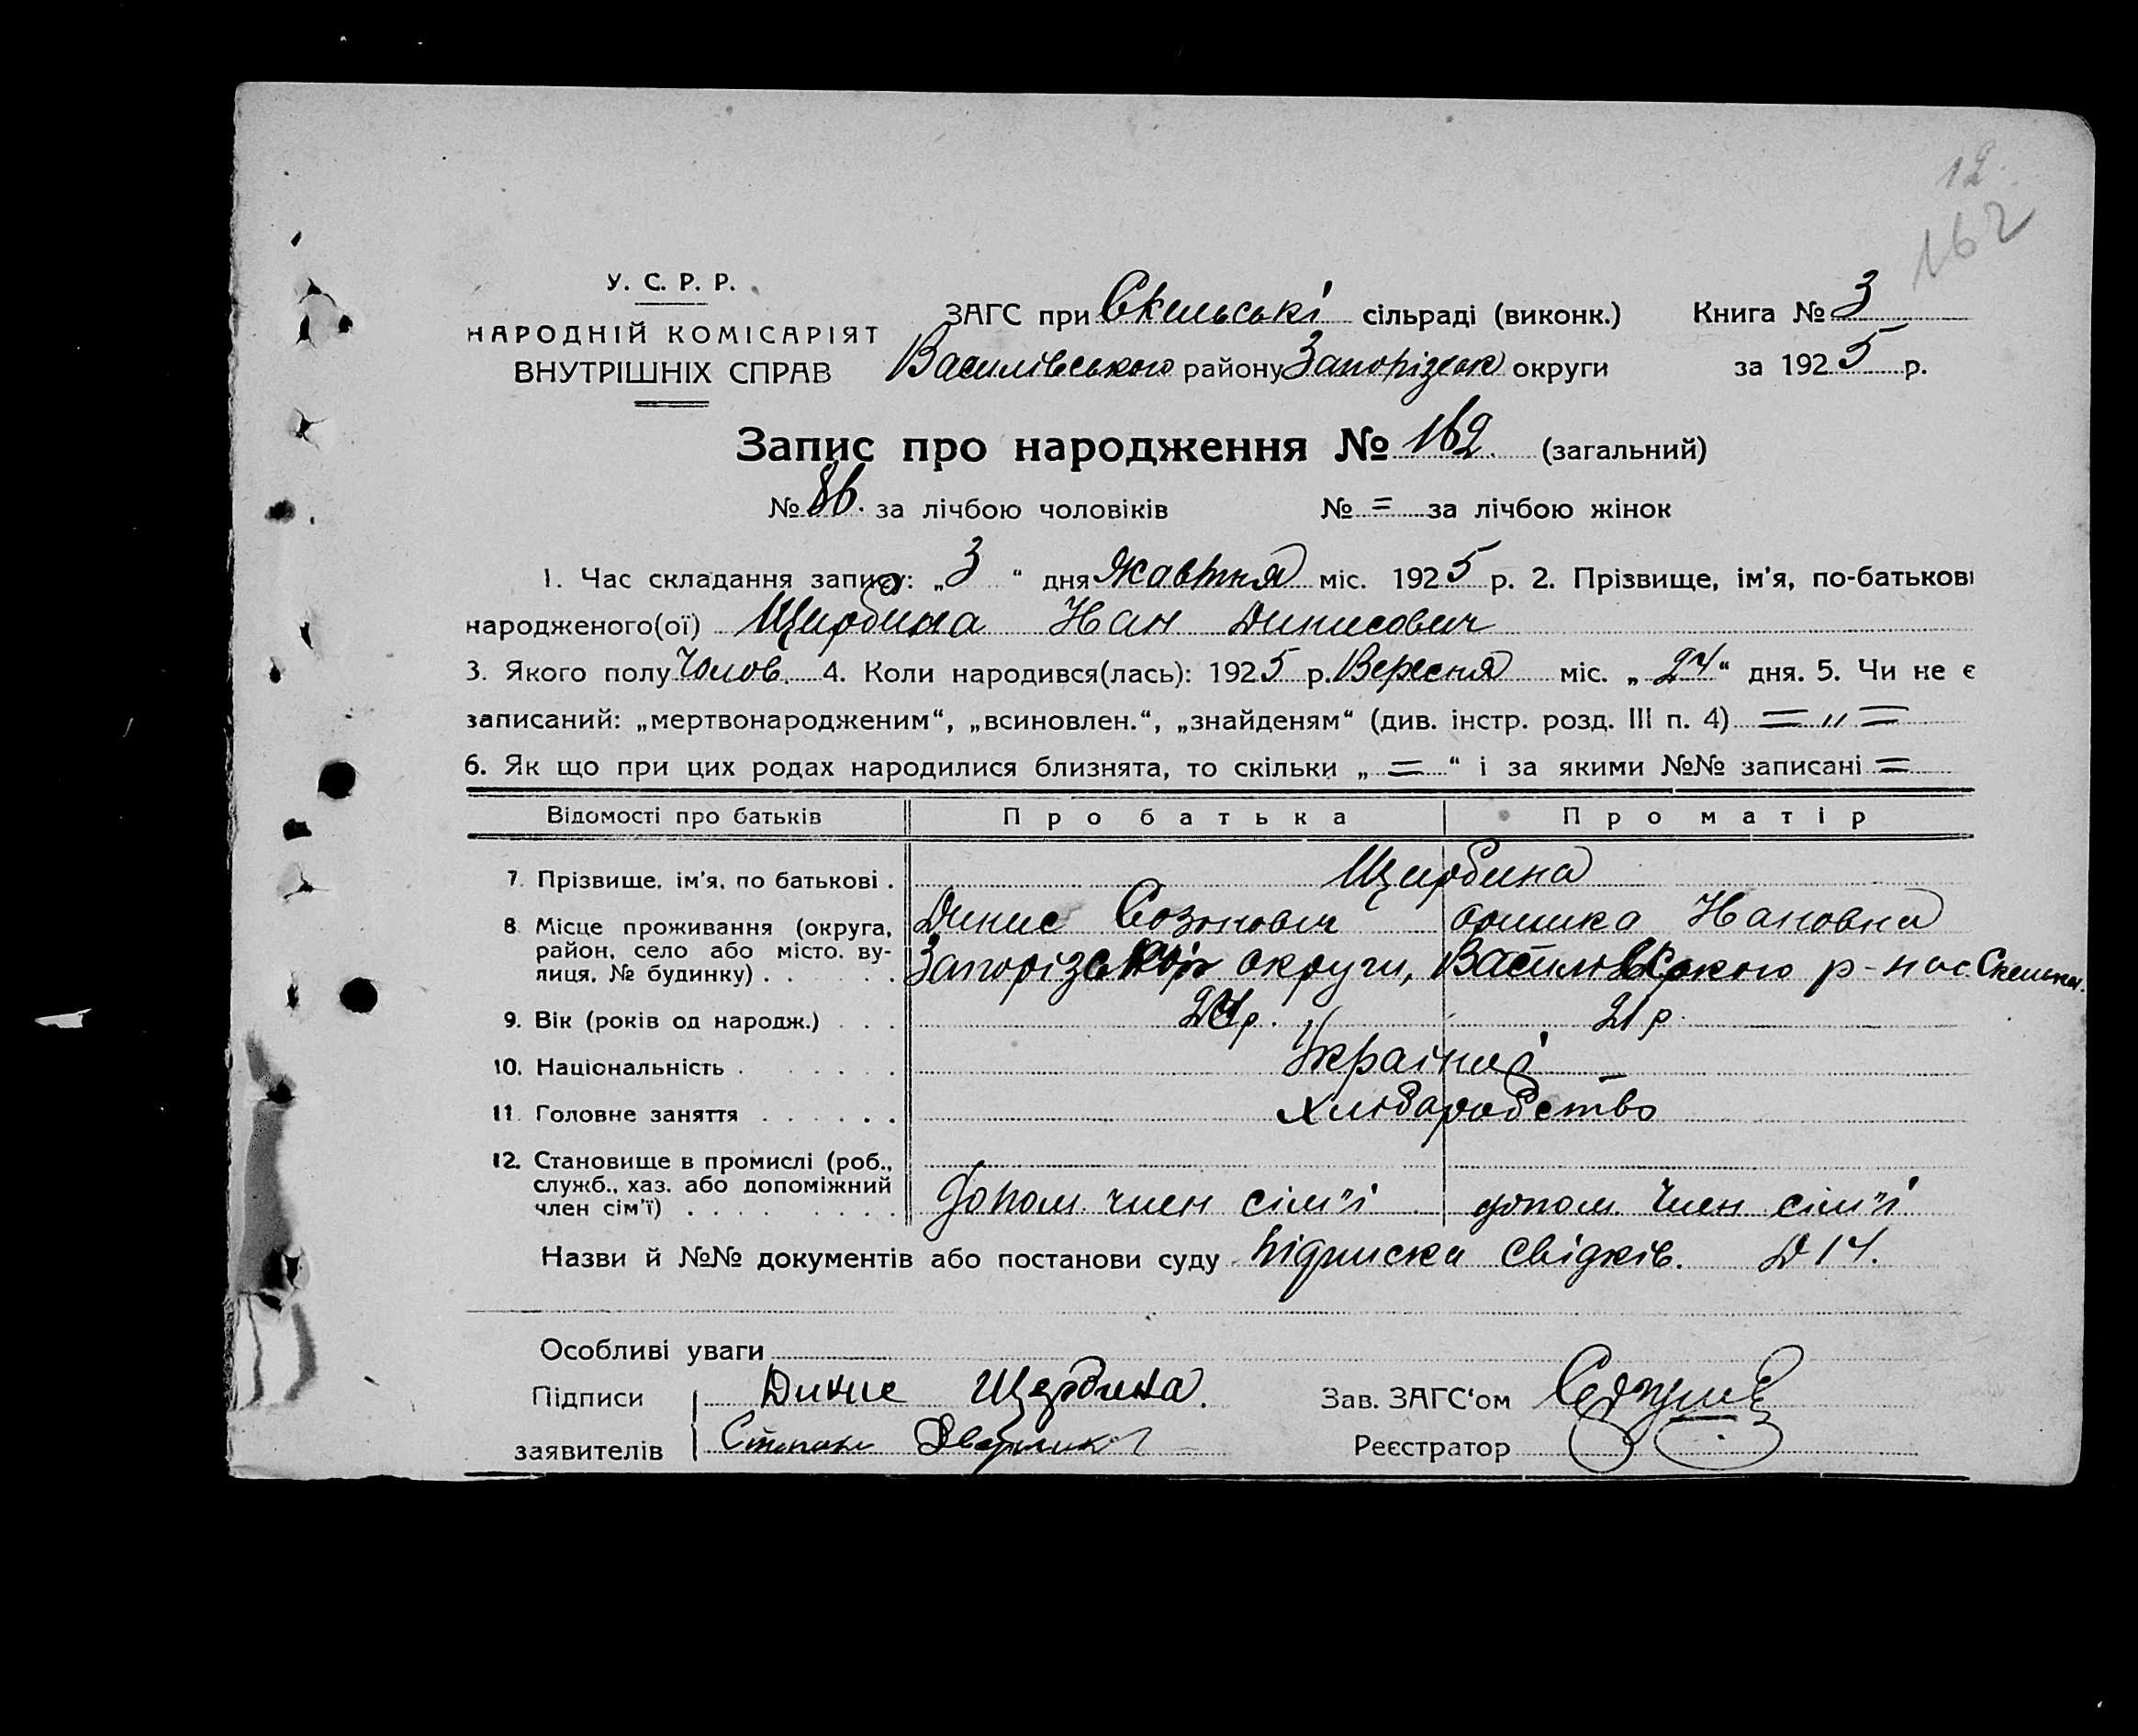 12.
162
У. С. Р. Р.
НАРОДНІЙ КОМІСАРІЯТ
ВНУТРІШНІХ СПРАВ
ЗАГС при Скельські сільраді (виконк.)
Василівського району Запорізьк округи
Книга № 3
за 1925 р.
Запис про народження № 162. (загальний)
№ 86. за лічбою чоловіків № = за лічбою жінок
1. Час складання запису: „3“ дня Жовтня міс. 1925 р. 2. Прізвище, ім'я, по-батькові
народженого(ої) Щирбина Иан Динисович
3. Якого полу Чолов. 4. Коли народився(лась): 1925 р. Вересня міс. „24“ дня. 5. Чи не є
записаний: „мертвонародженим“, „всиновлен.“, „знайденям“ (див. інстр. розд. III п. 4) = „ =
6. Як що при цих родах народилися близнята, то скільки „ = “ і за якими №№ записані =
Відомості про батьків Про батька Про матір
7. Прізвище, ім'я, по батькові . Щирбина
Динис Созонович Иановна
8. Місце проживання (округа,
район, село або місто, ву-
лиця, № будинку) . . . Запорізської округи, Василівського р-на с. Скельки.
9. Вік (років од народж.) . . . р. 21 р.
10. Національність . . . . . .
11. Головне заняття . . . . . . Хліборобство
12. Становище в промислі (роб.,
служб., хаз. або допоміжний
член сім'ї) . . . . . . . допом. член сім"і допом. член сім"і
Назви й №№ документів або постанови суду Підписка свідків. Д 14.
Особливі уваги
Підписи Динис Щербина.
заявителів Степан
Зав. ЗАГС'ом
Реєстратор